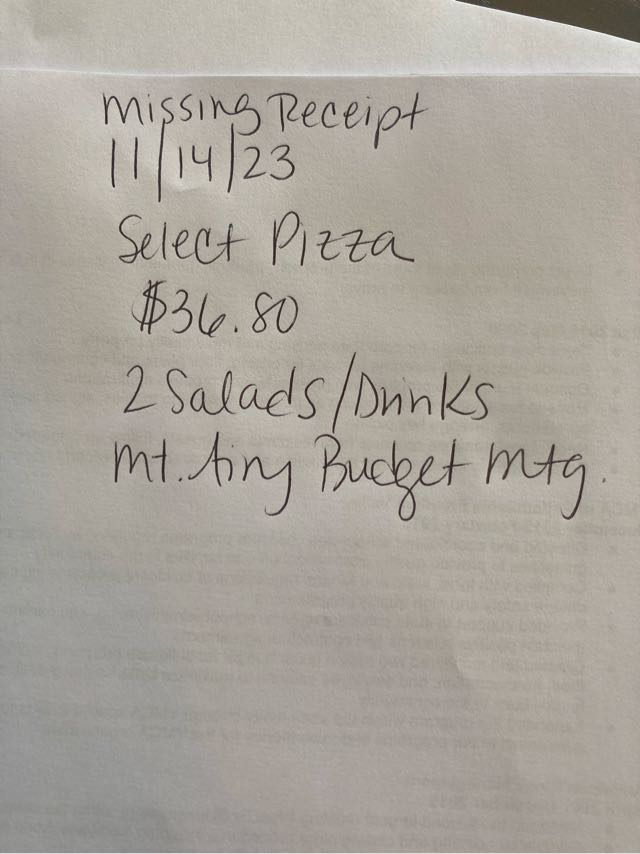 Missing Receipt
11/14/23
Select Pizza
$36.80
2 Salads/Drinks
Mt. Airy Budget Mtg.